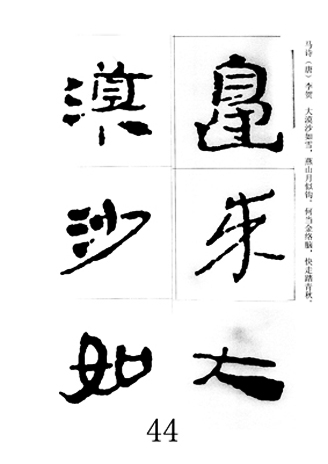 马诗（唐）李贺　大漠沙如雪，燕山月似钩，何当金络脑，快走踏青秋。
朱大
漠沙如
44